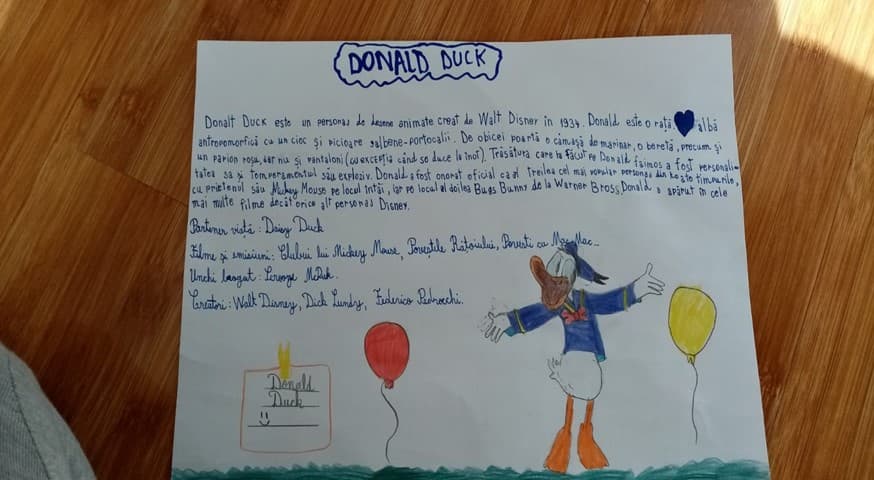 DONALD DUCK
Donalt Duck este un personaj de desene animate creat de Walt Disner în 1934. Donald este o rață albă
antropomorfică cu un cioc și picioare galbene-portocalii. De obicei poartă o cămașă de marinar, o beretă, precum și
un papion roșu, dar nu și pantaloni (cu excepția când se duce la înot). Trăsătura care l-a făcut pe Donald faimos a fost personali-
tatea sa și temperamentul său exploziv. Donald a fost onorat oficial ca al treilea cel mai popular personaj din toate timpurile,
cu prietenul său Mickey Mouse pe locul întâi, iar pe locul al doilea Bugs Bunny de la Warner Bross, Donald a apărut în cele
mai multe filme decât orice alt personaj Disney.
Partener viață: Daisy Duck
Filme și emisiuni: Clubul lui Mickey Mouse, Poveștile Rățoiului, Povesti cu Mac-Mac...
Unchi bogat: Scrooge McDuk.
Creatori: Walt Disney, Dick Lundy, Federico Pedrocchi.
Donald
Duck